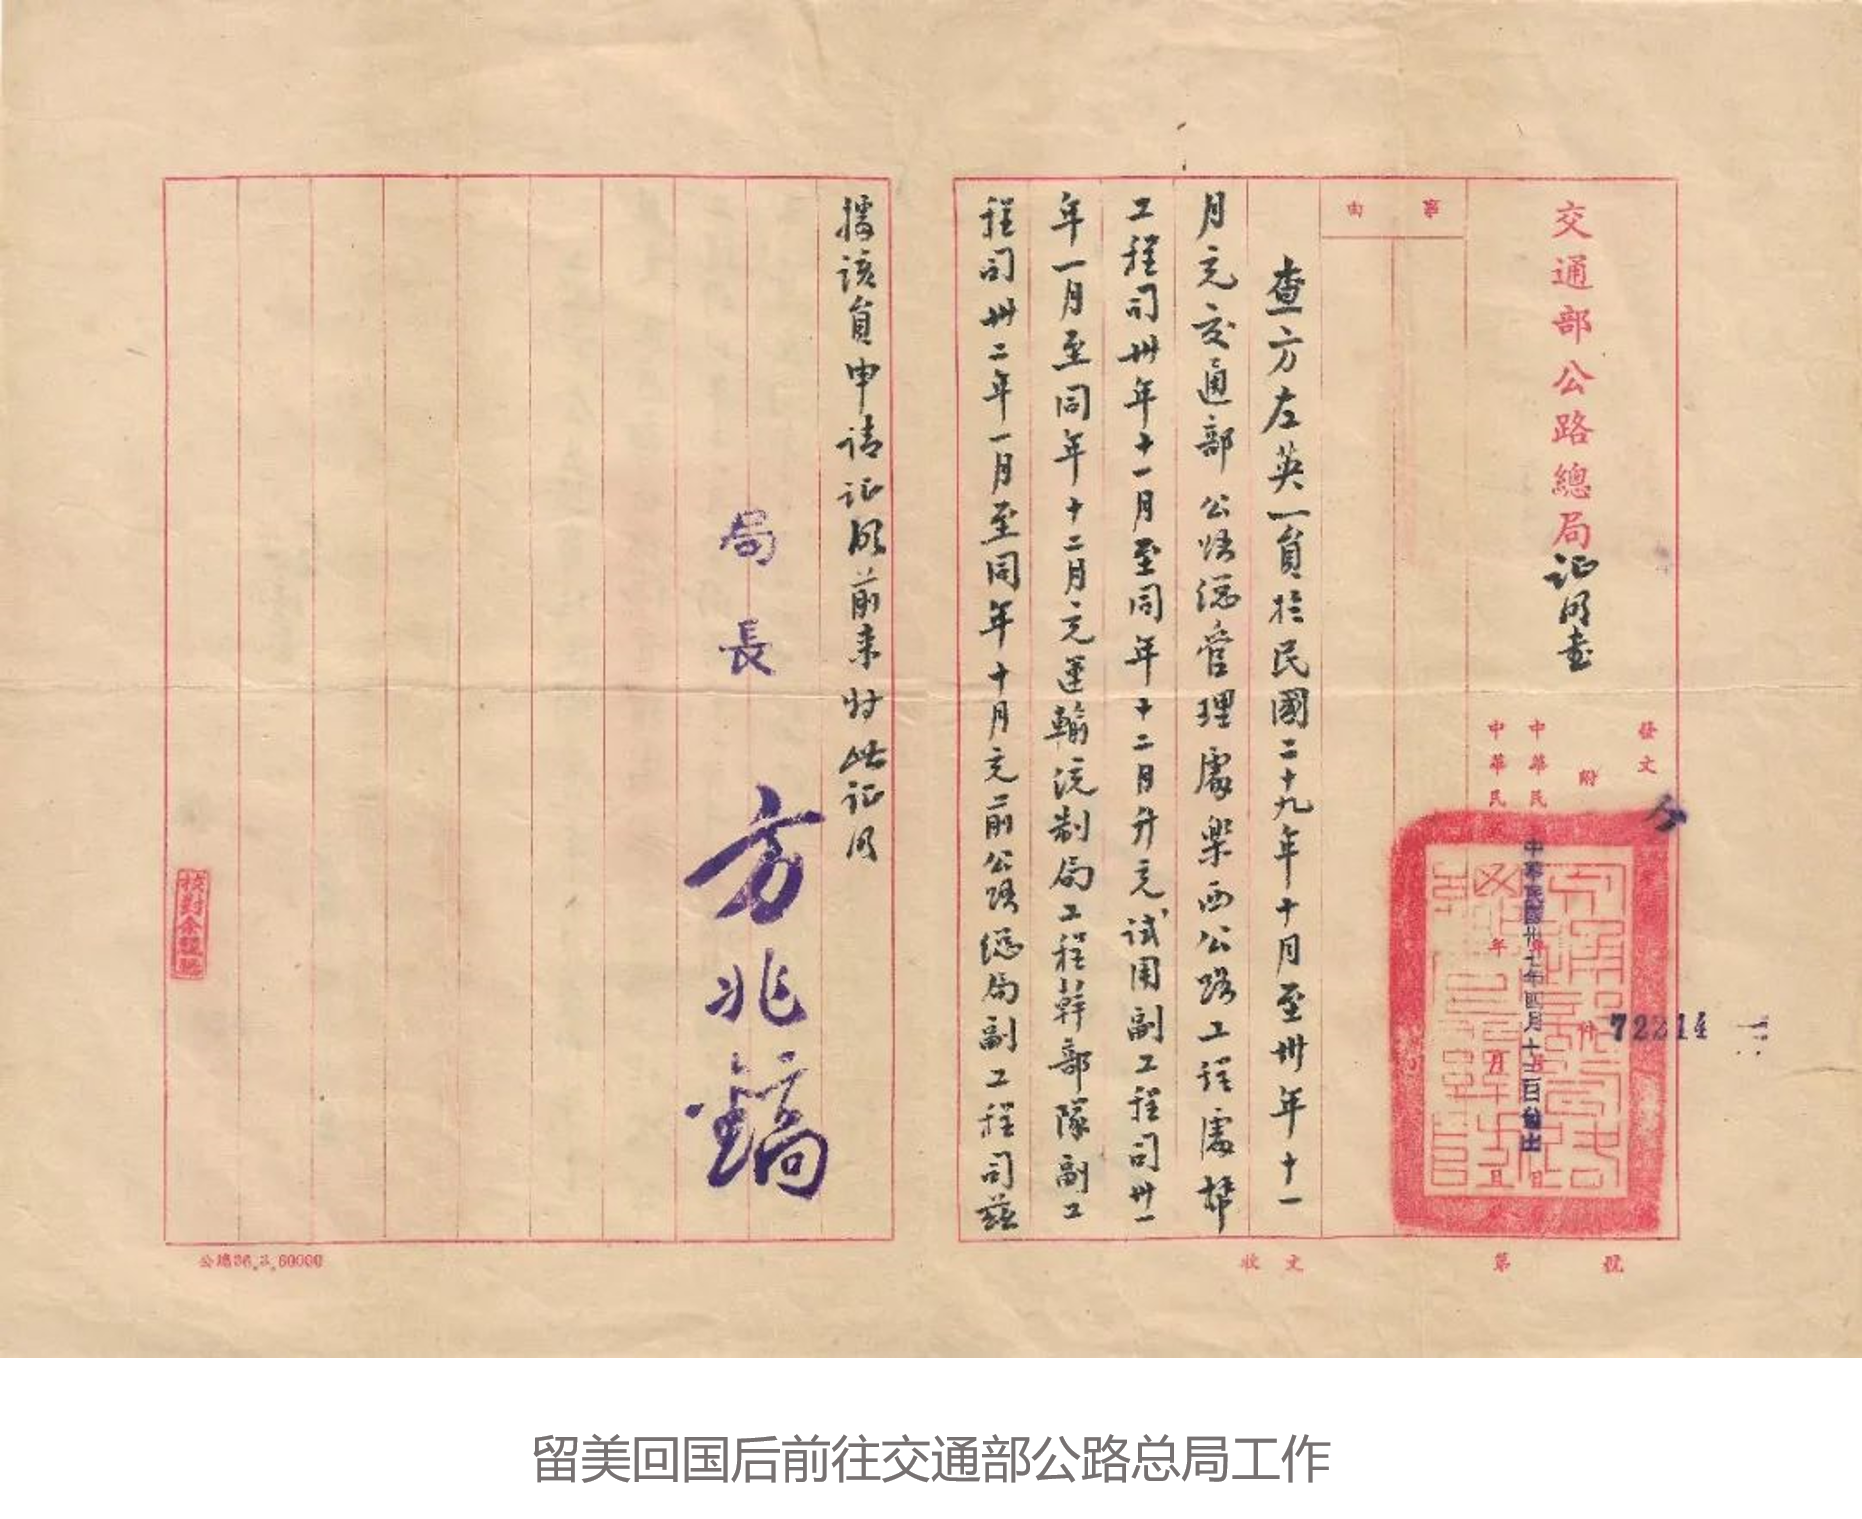 交通部公路總局证明書
事由
發文
附
件
中華民
年
月
日
中華民
年
月
日
中華民國卅七年四月十三日發出
72214
查方左英一員於民國二十九年十月至卅年十一
月充交通部公路總管理處樂西公路工程處幫
工程司卅年十一月至同年十二月升充試用副工程司卅一
年一月至同年十二月充運輸統制局工程幹部隊副工
程司卅二年一月至同年十月充前公路總局副工程司茲
據該員申请证明前来特此证明
局長 方兆鎬
收文
第
號
公總36.3.60000
留美回国后前往交通部公路总局工作